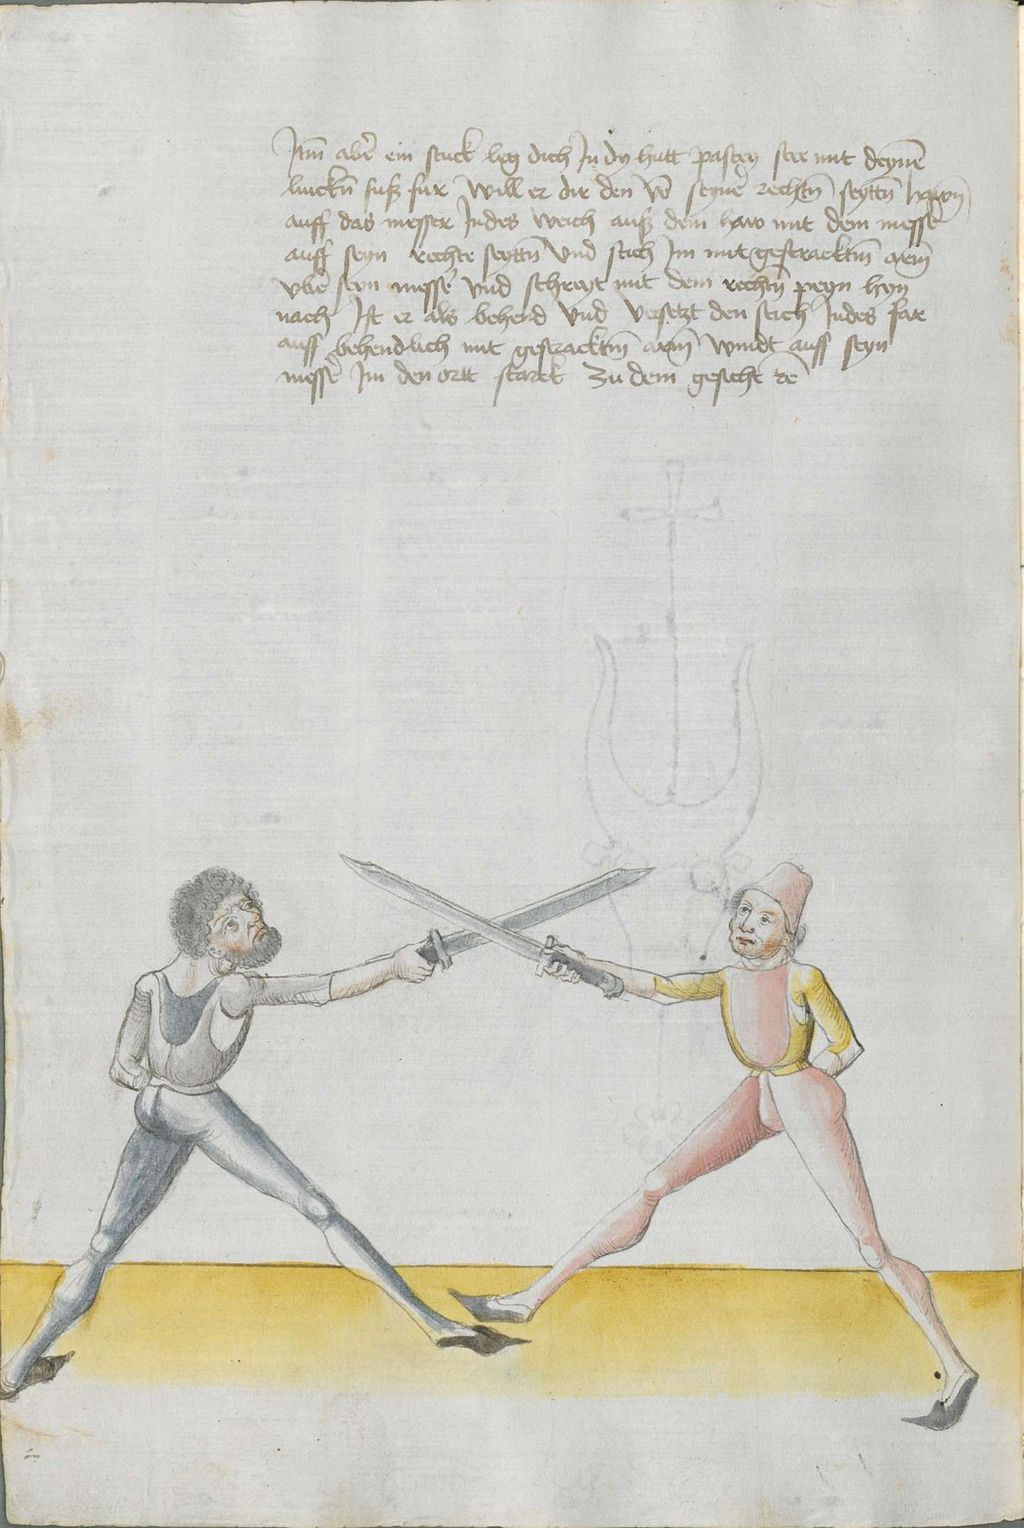 Itm̄ abē ein stuck leg dich In dy hutt pastey ster mit deynē
linckn̄ fuß fur Will er dir den vō seynē rechtn̄ seyttn̄ hawn̄
auff das messer Indes Weich auß dem haw mit dem messē
auff seyn rechte seyttn̄ Vnd stich Im mit gestracktm̄ arm̄
vbē seyn messē vnd schreyt mit dem rechtn̄ peyn hyn
nach Ist er als behend Vnd Versetzt den stich Indes far
auff behendlich mit gestracktm̄ arm̄ windt auff seyn
messē Im den ortt starck Zu dem gesicht rē